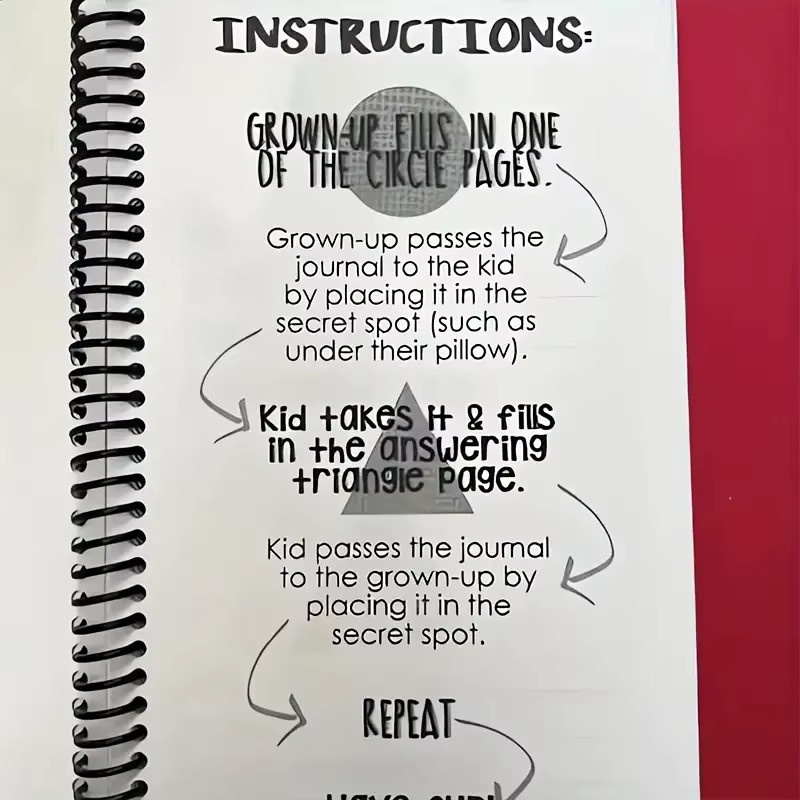 INSTRUCTIONS:
GROWN-UP FILLS IN ONE
OF THE CIRCLE PAGES.
Grown-up passes the
journal to the kid
by placing it in the
secret spot (such as
under their pillow).
Kid takes it & fills
in the answering
triangle page.
Kid passes the journal
to the grown-up by
placing it in the
secret spot.
REPEAT